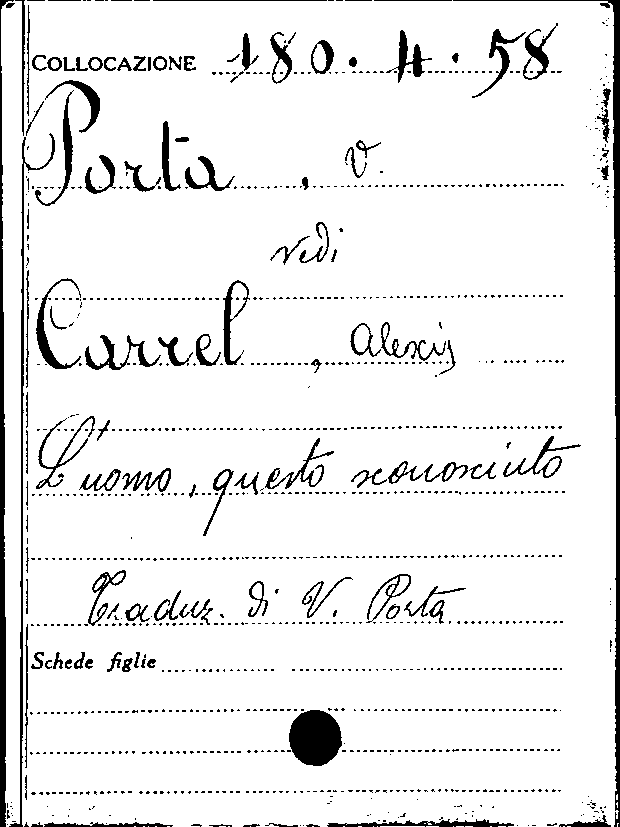 COLLOCAZIONE 180.4.58
Porta, V.
vedi
Carrel, Alexis
L'uomo, questo sconosciuto
Traduz. di V. Porta
Schede figlie